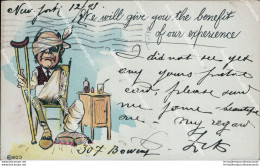 New York 12/08
We will give you the benefit
of our experience
I did not see yet
any yours postal
card, please send
me some beautiful
one my regard
307 Bowery